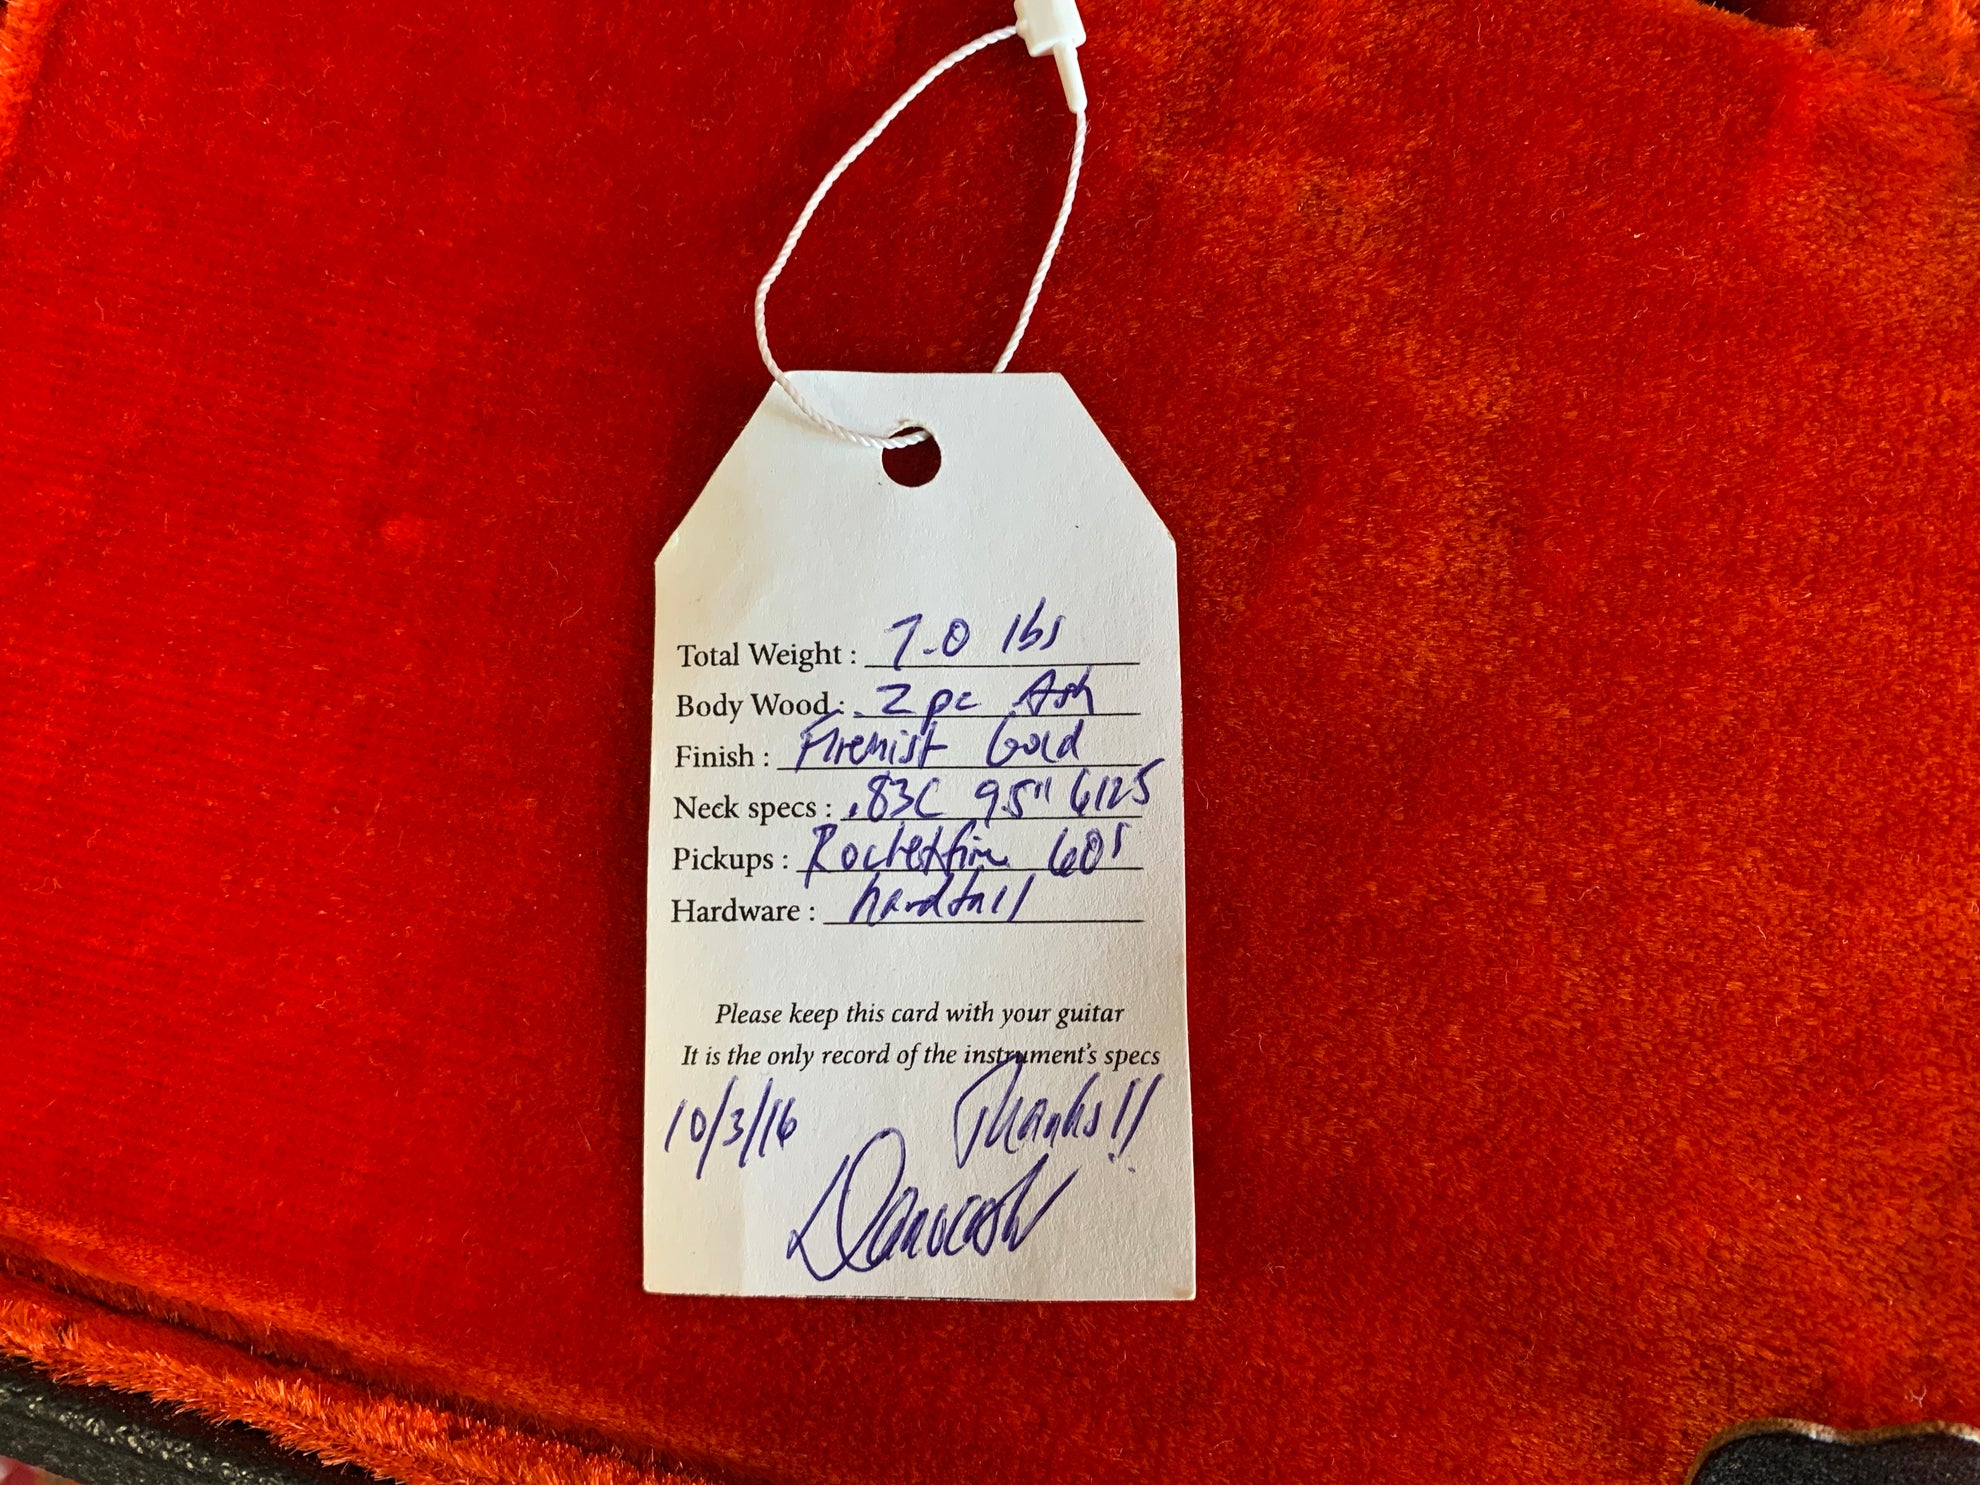 Total Weight : 7.0 lbs
Body Wood : 2 pc Ash
Finish : Firemist Gold
Neck specs : .83C 9.5" 6125
Pickups : Rocketfire 60s
Hardware : hardtail
Please keep this card with your guitar
It is the only record of the instrument's specs
10/3/16 Thanks!!